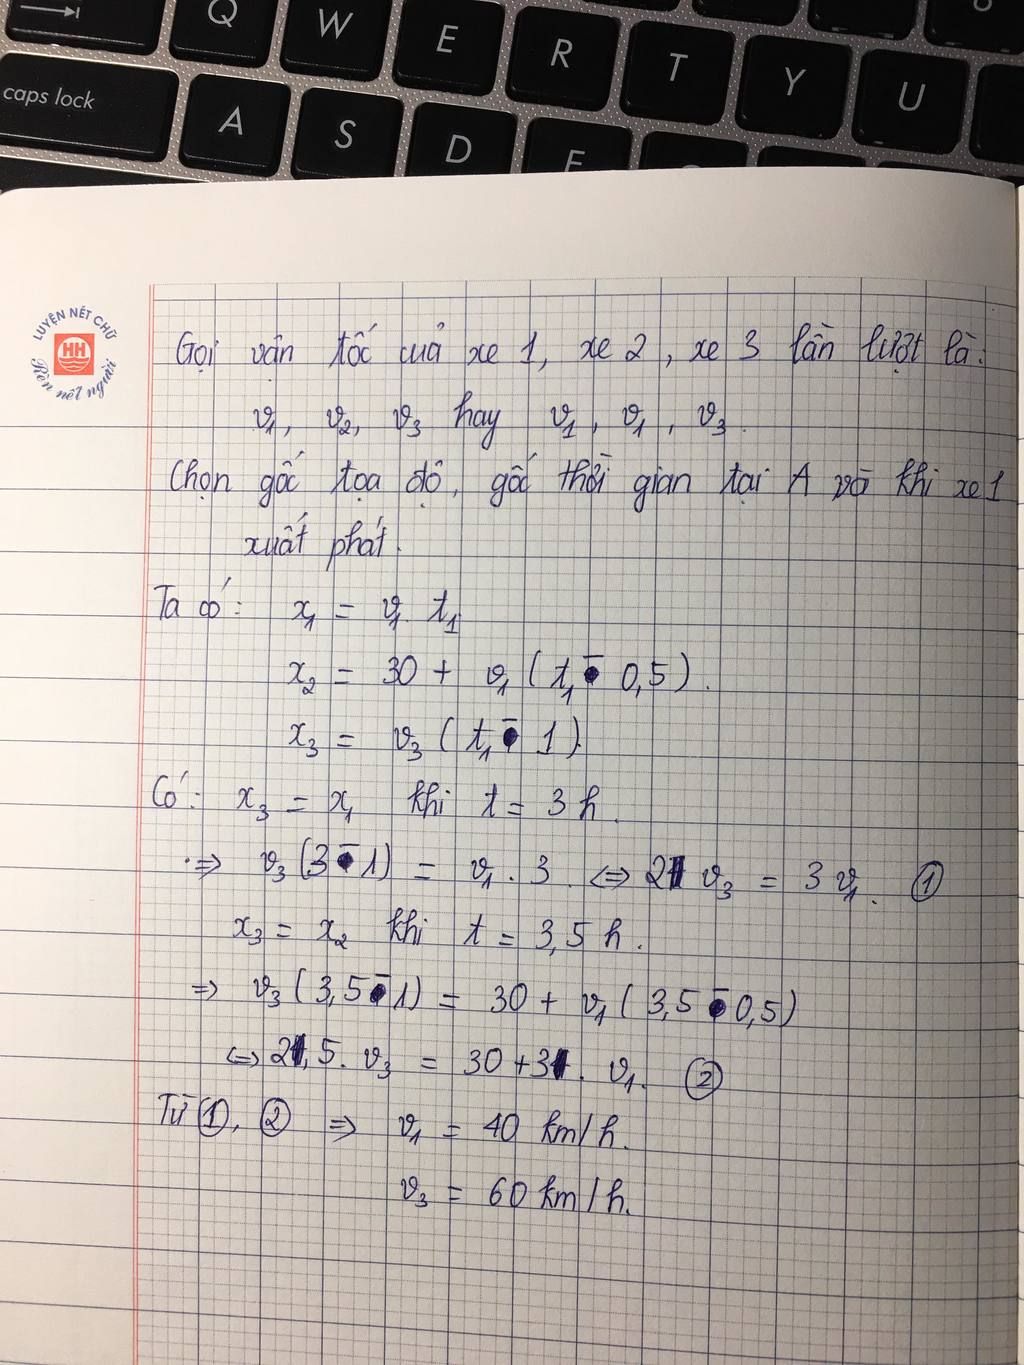 Q W E R T Y U
caps lock A S D F
LUYỆN NÉT CHỮ
HH
Rèn nết người
Gọi vận tốc của xe 1, xe 2, xe 3 lần lượt là:
v₁, v₂, v₃ hay v₁, v₁, v₃.
Chọn gốc tọa độ, gốc thời gian tại A và khi xe 1
xuất phát.
Ta có: x₁ = v₁ . t₁
x₂ = 30 + v₁ ( t₁ - 0,5 ).
x₃ = v₃ ( t₁ - 1 )
Có: x₃ = x₁ khi t = 3 h.
⇒ v₃ (3 - 1) = v₁ . 3 . ⇔ 2 v₃ = 3 v₁. ①
x₃ = x₂ khi t = 3,5 h.
⇒ v₃ ( 3,5 - 1) = 30 + v₁ ( 3,5 - 0,5 )
⇔ 2,5 . v₃ = 30 + 3 . v₁. ②
Từ ①, ② ⇒ v₁ = 40 km/h.
v₃ = 60 km/h.